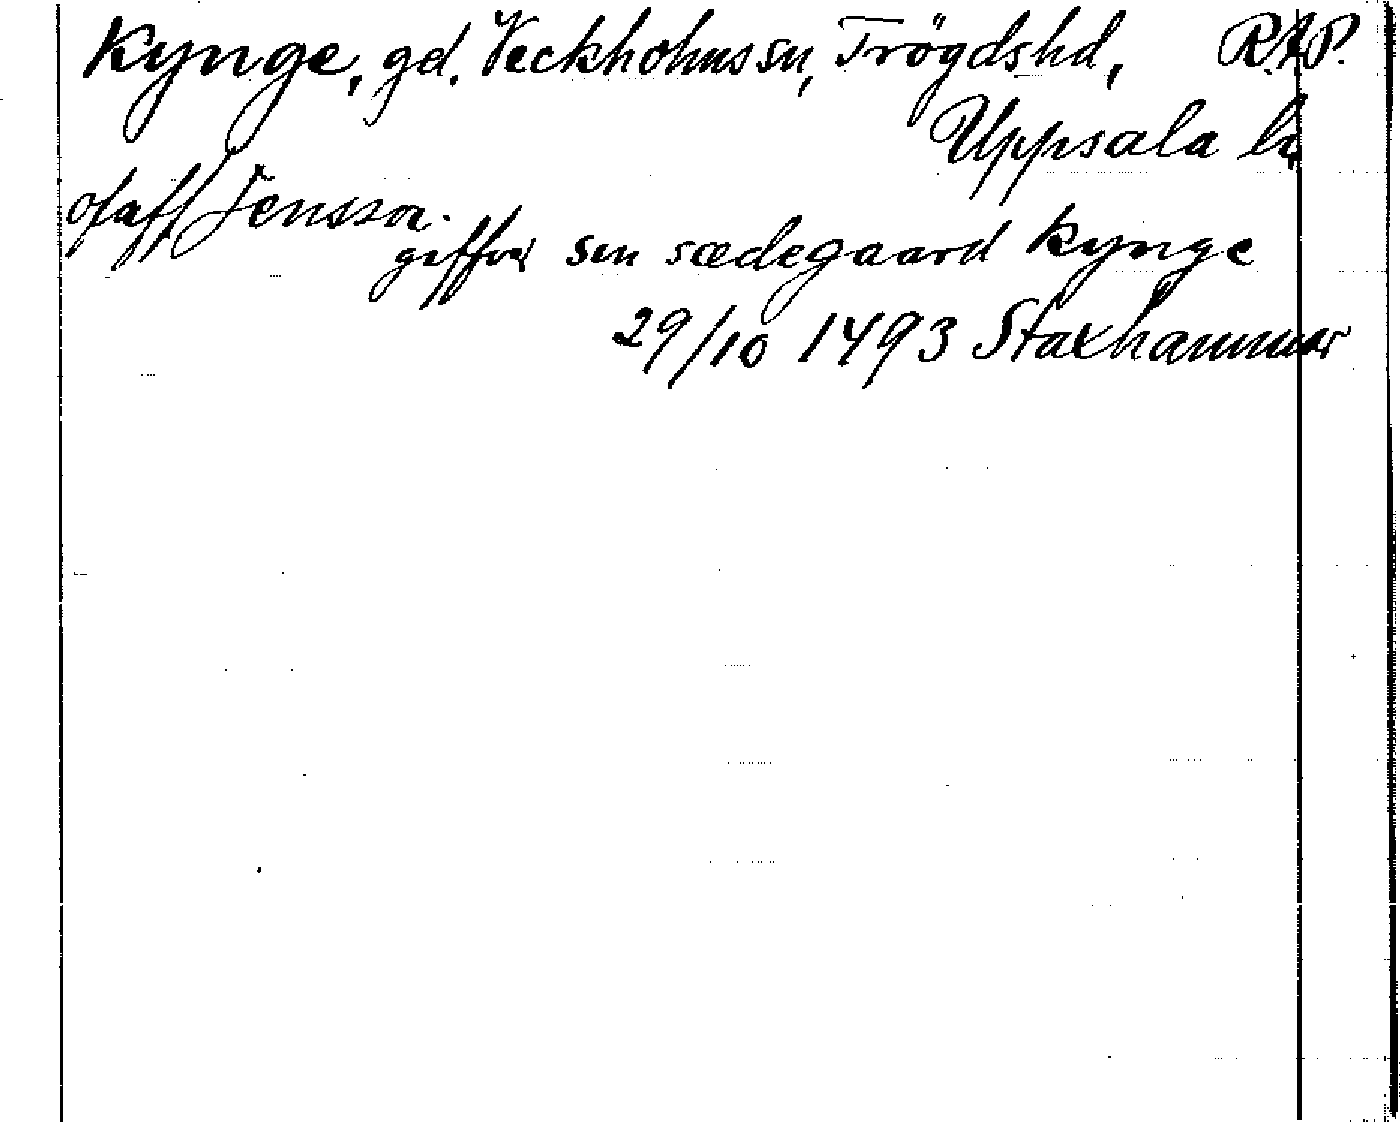 Kynge, gd, Veckholms sn, Trögds hd, R.A.P.
Uppsala län
olaff Jensson.
geffver sin sædegaard Kynge
29/10 1493 Stäkhammar